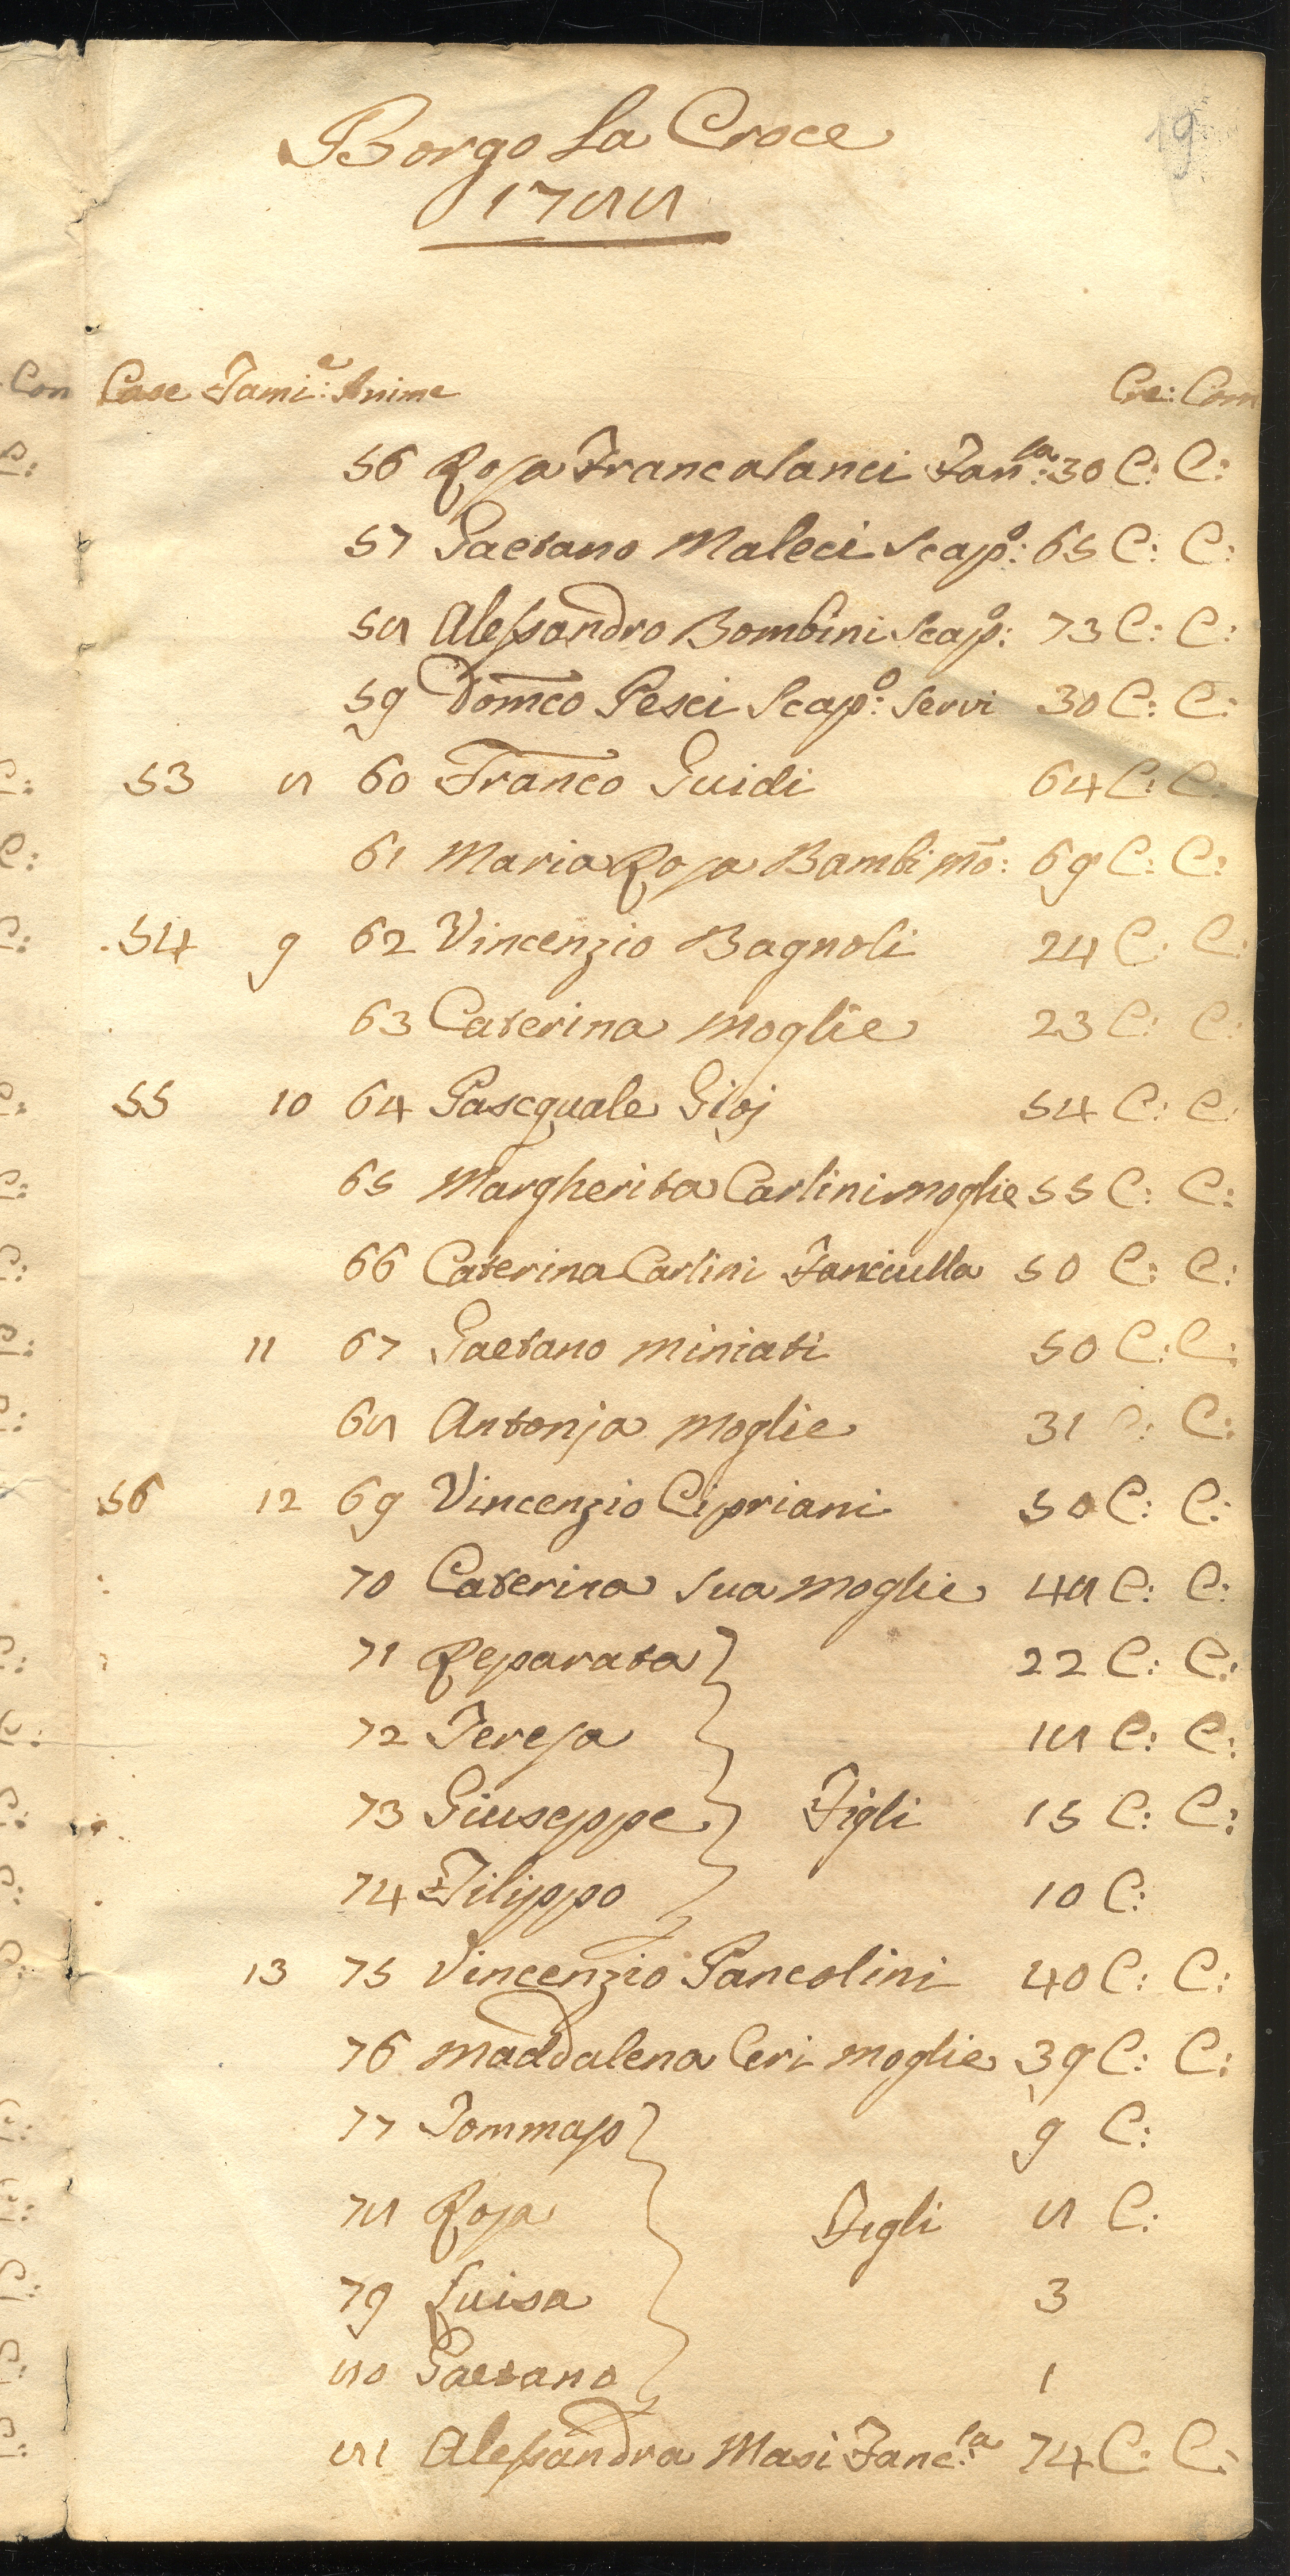 19
Borgo La Croce
1788
Case Fami:e Anime Cre: Com
56 Rosa Francalanci Fan:la 30 C: C:
57 Gaetano Maleci Scap:o 65 C: C:
58 Alessandro Bombini Scap:o 73 C: C:
59 Domco Pesci Scap:o Servi 30 C: C:
53 8 60 Franco Guidi 64 C: C:
61 Maria Rosa Bambi Mo: 69 C: C:
54 9 62 Vincenzio Bagnoli 24 C: C:
63 Caterina Moglie 23 C: C:
55 10 64 Pascquale Gioj 54 C: C:
65 Margherita Carlini moglie 55 C: C:
66 Caterina Carlini Fanciulla 50 C: C:
11 67 Gaetano Miniati 50 C: C:
68 Antonja Moglie 31 C: C:
56 12 69 Vincenzio Cipriani 50 C: C:
70 Caterina Sua Moglie 48 C: C:
71 Reparata 22 C: C:
72 Teresa 18 C: C:
73 Giuseppe Figli 15 C: C:
74 Filippo 10 C:
13 75 Vincenzio Pancolini 40 C: C:
76 Maddalena Ceri Moglie 39 C: C:
77 Tommaso 9 C:
78 Rosa Figli 8 C:
79 Luisa 3
80 Gaetano 1
81 Alessandra Masi Fanc:la 74 C: C: